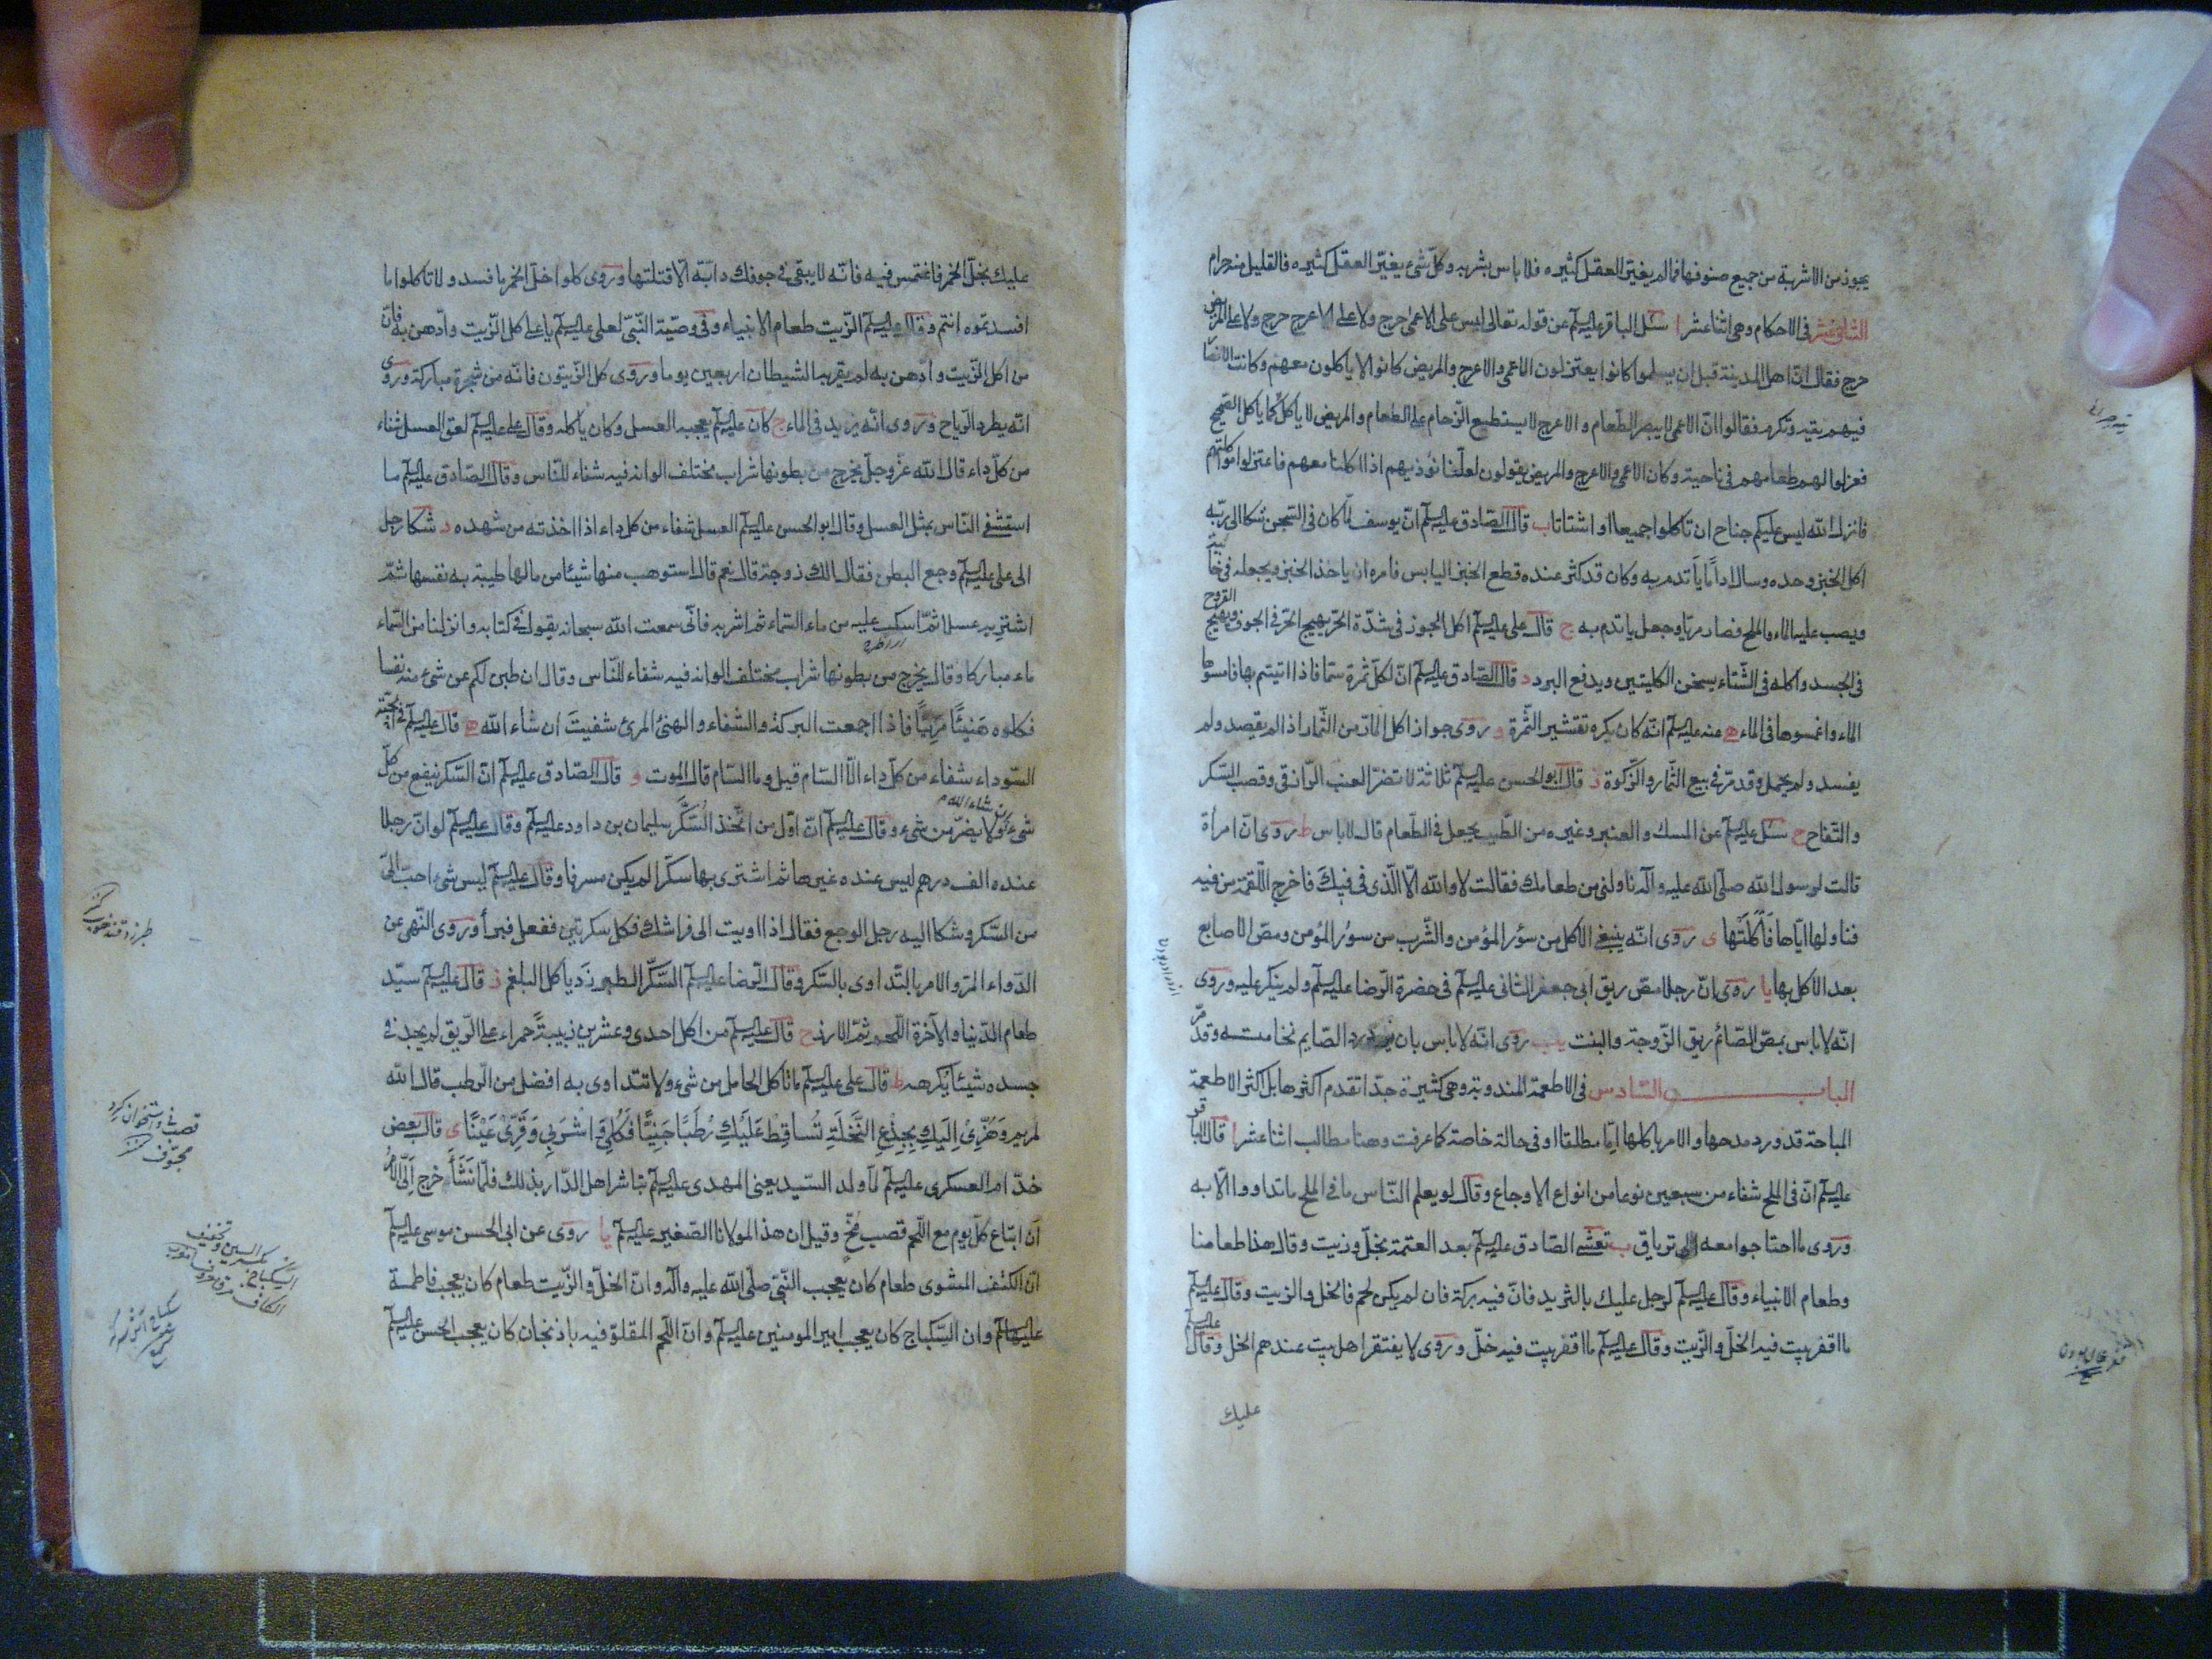 يجوز من الاشربة من جميع صنوفها فما لم يغيّر العقل كثيره فلا باس بشربه وكلّ شيء يغيّر العقل كثيره فالقليل منه حرام
الثانى عشر فى الاحكام وهى اثناعشر ا سئل الباقر عليه السلم عن قوله تعالى ليس على الاعمى حرج ولا على الاعرج حرج ولا على المريض
حرج فقال انّ اهل المدينة قبل ان يسلموا كانوا يعتزلون الاعمى والاعرج والمريض كانوا لا ياكلون معهم وكانت الانصار
فيهم تيه وتكرم فقالوا انّ الاعمى لا يبصر الطّعام والاعرج لا يستطيع الزّحام على الطعام والمريض لا ياكل كما ياكل الصّحيح
فعزلوا لهم طعامهم فى ناحية وكان الاعمى والاعرج والمريض يقولون لعلّنا نؤذيهم اذا اكلنا معهم فاعتزلوا مواكلتهم
فانزل الله ليس عليكم جناح ان تاكلوا جميعا او اشتاتا ب قال الصّادق عليه السلم انّ يوسف لمّا كان فى السّجن شكا الى ربّه
اكل الخبز وحده وسال اداما ياتدم به وكان قد كثر عنده قطع الخبز اليابس فامره ان ياخذ الخبز ويجعله فى خابية
ويصب عليه الماء والملح فصار مريّا وجعل ياتدم به ج قال على عليه السلم اكل الجوز فى شدّة الحرّ يهيج الحرّ فى الجوف ويهيج القروح
فى الجسد واكله فى الشّتاء يسخن الكليتين ويدفع البرد د قال الصّادق عليه السلم انّ لكلّ ثمرة سمّا فاذا اتيتم بها فامسوها
الماء واغمسوها فى الماء ه عنه عليه السلم انّه كان يكره تقشير الثّمرة و روى جواز اكل المارّ من الثّمار اذا لم يقصد ولم
يفسد ولم يحمل وقد مرّ فى بيع الثّمار والزّكوة ز قال ابو الحسن عليه السلم ثلاثة لا تضرّ العنب الرّازقى وقصب السّكر
والتّفاح ح سئل عليه السلم عن المسك والعنبر وغيره من الطّيب يجعل فى الطّعام قال لا باس ط روى انّ امرأة
قالت لرسول الله صلّى الله عليه وآله ناولنى من طعامك فقالت لا والله الّا الّذى فى فيك فاخرج اللّقمة من فيه
فناولها ايّاها فاكلتها ى روى انّه ينبغى الاكل من سؤر المؤمن والشّرب من سؤر المؤمن ومصّ الاصابع
بعد الاكل بها يا روى انّ رجلا مصّ ريق ابى جعفر الثانى عليه السلم فى حضرة الرّضا عليه السلم ولم ينكر عليه وروى
انّه لا باس بمصّ الصّائم ريق الزّوجة والبنت يب روى انّه لا باس بان يزدرد الصّايم نخامته وقد مرّ
الباب السّادس فى الاطعمة المندوبة وهى كثيرة جدّا تقدم اكثرها بل اكثر الاطعمة
المباحة قد ورد مدحها والامر باكلها امّا مطلقا او فى حالة خاصة كما عرفت وهنا مطالب اثناعشر ا قال الباقر
عليه السلم انّ فى الملح شفاء من سبعين نوعا من انواع الاوجاع وقال لو يعلم النّاس ما فى الملح ما تداووا الّا به
وروى ما احتاجوا معه الى ترياق ب تعشى الصّادق عليه السلم بعد العتمة بخلّ وزيت وقال هذا طعامنا
وطعام الانبياء وقال عليه السلم لرجل عليك بالثريد فانّ فيه بركة فان لم يكن لحم فالخل والزيت وقال عليه السلم
ما اقفر بيت فيه الخلّ والزّيت وقال عليه السلم ما اقفر بيت فيه خلّ وروى لا يفتقر اهل بيت عندهم الخل وقال عليه السلم
عليك
عليك بخلّ الخمر فاغتمس فيه فانّه لا يبقى فى جوفك دابّة الّا قتلتها وروى كلوا خلّ الخمر ما فسد ولا تاكلوا ما
افسدتموه انتم وقال عليه السلم الزّيت طعام الانبياء وفى وصيّة النّبىّ لعلى عليه السلم يا على كل الزّيت وادّهن به فانّ
من اكل الزّيت وادّهن به لم يقربه الشيطان اربعين يوما وروى كل الزّيتون فانّه من شجرة مباركة وروى
انّه يطرد الرّياح وروى انّه يزيد فى الماء ج كان عليه السلم يعجبه العسل وكان ياكله وقال على عليه السلم لعق العسل شفاء
من كلّ داء قال الله عزّ وجلّ يخرج من بطونها شراب مختلف الوانه فيه شفاء للنّاس وقال الصّادق عليه السلم ما
استشفى النّاس بمثل العسل وقال ابو الحسن عليه السلم العسل شفاء من كل داء اذا اخذته من شهده د شكا رجل
الى على عليه السلم وجع البطن فقال الك زوجة قال نعم قال استوهب منها شيئا من مالها طيبة به نفسها ثمّ
اشتر به عسلا ثمّ اسكب عليه من ماء السّماء ثم اشربه فانّى سمعت الله سبحانه يقول فى كتابه وانزلنا من السّماء
ماء مباركا وقال يخرج من بطونها شراب مختلف الوانه فيه شفاء للنّاس وقال ان طبن لكم عن شىء منه نفسا
فكلوه هنيئًا مريئًا فاذا اجمعت البركة والشفاء والهنئ المرئ شفيت ان شاء الله ه قال عليه السلم فى الحبّة
السّوداء شفاء من كلّ داء الّا السّام قيل وما السّام قال الموت و قال الصّادق عليه السلم انّ السّكر ينفع من كلّ
شىء ولا يضرّ من شىء ان شاء الله وقال عليه السلم انّ اوّل من اتّخذ السّكّر سليمان بن داود عليه السلم وقال عليه السلم لو انّ رجلا
عنده الف درهم ليس عنده غيرها ثم اشترى بها سكّرا لم يكن مسرفا وقال عليه السلم ليس شىء احبّ الىّ
من السّكر وشكا اليه رجل الوجع فقال اذا اويت الى فراشك فكل سكرتين ففعل فبرأ وروى النّهى عن
الدّواء المرّ والامر بالتّداوى بالسّكر وقال الرّضا عليه السلم السّكّر الطبرزد ياكل البلغم ز قال عليه السلم سيّد
طعام الدّنيا والآخرة اللّحم ثمّ الارز ح قال عليه السلم من اكل احدى وعشرين زبيبةً حمراء على الرّيق لم يجد فى
جسده شيئا يكرهه ط قال على عليه السلم ما تاكل الحامل من شىء ولا تتداوى به افضل من الرّطب قال الله
لمريم وَهُزّى الَيكِ بِجِذعِ النَّخلَةِ تُساقِط عَلَيكِ رُطَبًا جَنِيًّا فَكُلِى وَاشرَبِى وَقَرِّى عَيْنًا ى قال بعض
خدّام العسكرى عليه السلم لمّا ولد السّيد يعنى المهدى عليه السلم تباشر اهل الدّار بذلك فلمّا نَشَأَ خرج اِلَىّ الامر
اَن ابتاع كلّ يوم مع اللّحم قصب مُخّ وقيل ان هذا لمولانا الصّغير عليه السلم يا روى عن ابى الحسن موسى عليه السلم
انّ الكتف المشوى طعام كان يعجب النّبىّ صلّى الله عليه وآله وانّ الخلّ والزّيت طعام كان يعجب فاطمة
عليها السلم وان السّكباج كان يعجب امير المومنين عليه السلم وانّ اللّحم المقلوّ فيه باذنجان كان يعجب الحسن عليه السلم